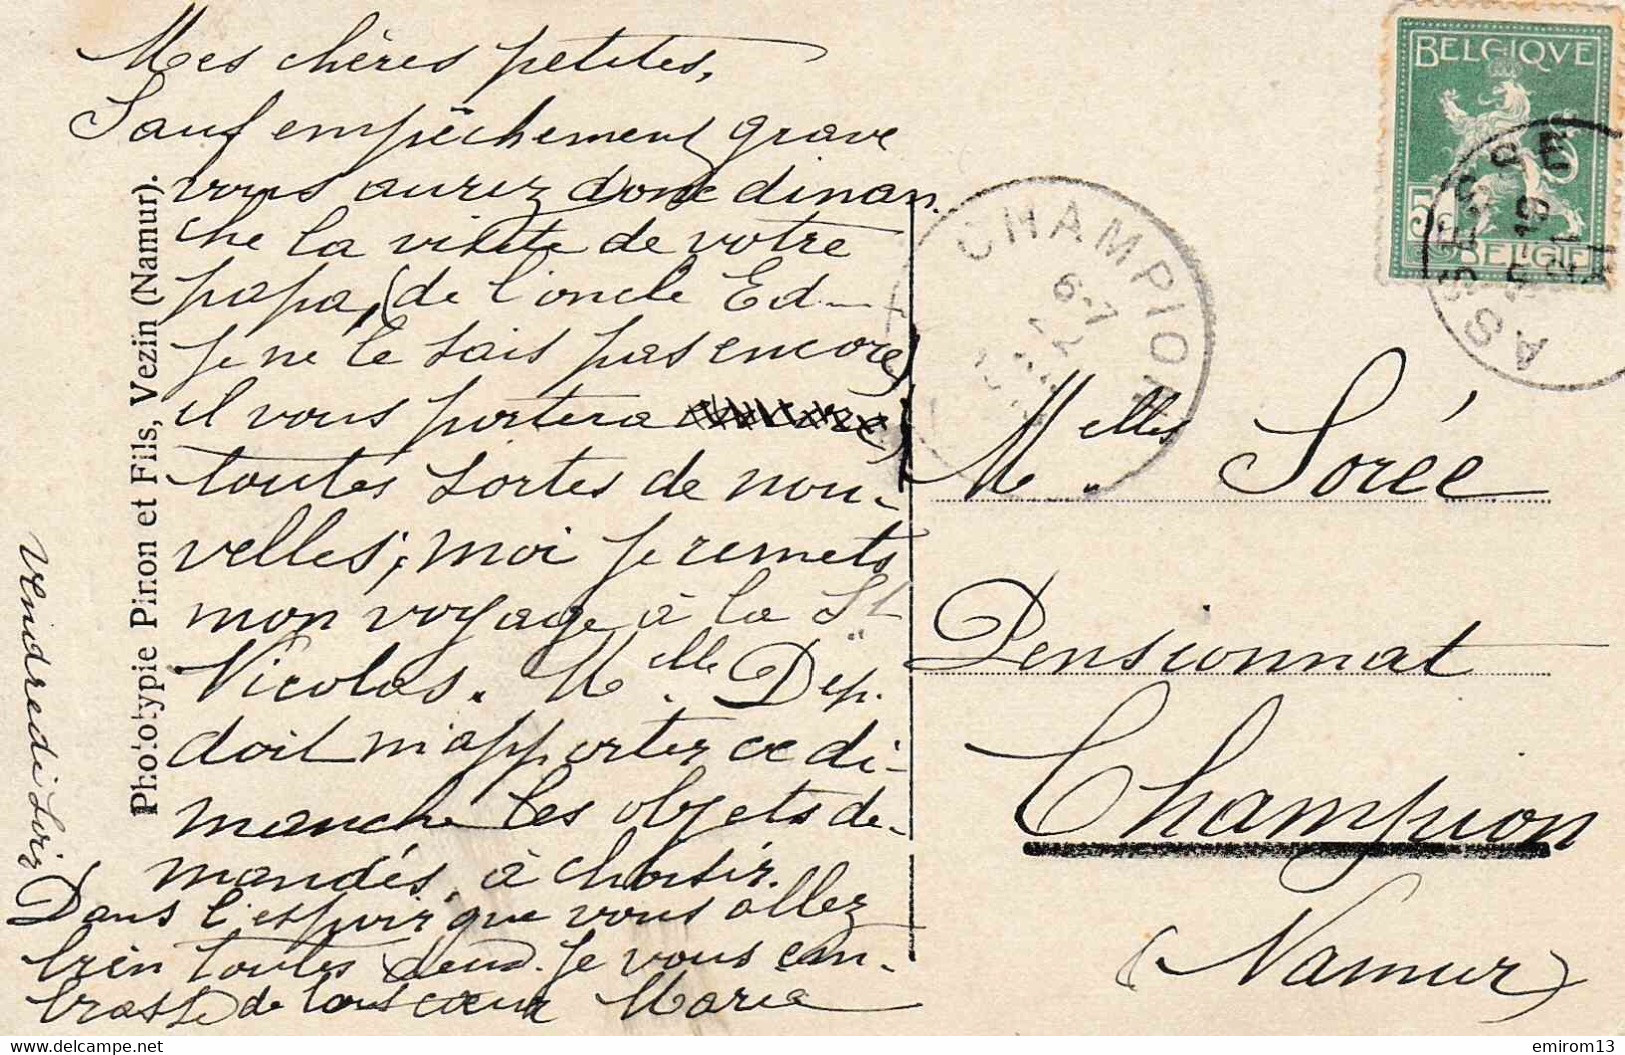 Mes chères petites,
Sauf empêchement grave
vous aurez donc diman
che la visite de votre
papa, (de l'oncle Ed-
je ne le sais pas encore)
il vous portera
toutes sortes de nou-
velles; moi je remets
mon voyage à la St
Nicolas. Melle Dep.
doit m'apporter ce di-
manche les objets de-
mandés, à choisir.
Dans l'espoir que vous allez
bien toutes deux. Je vous em-
brasse de tout cœur Maria
Vendredi soir
Phototypie Pinon et Fils, Vezin (Namur).
BELGIQVE
5c 5c
BELGIE
ASSESSE
CHAMPION
6-7
Melles Sorée
Pensionnat
Champion
(Namur)
Delcampe.net
emirom13